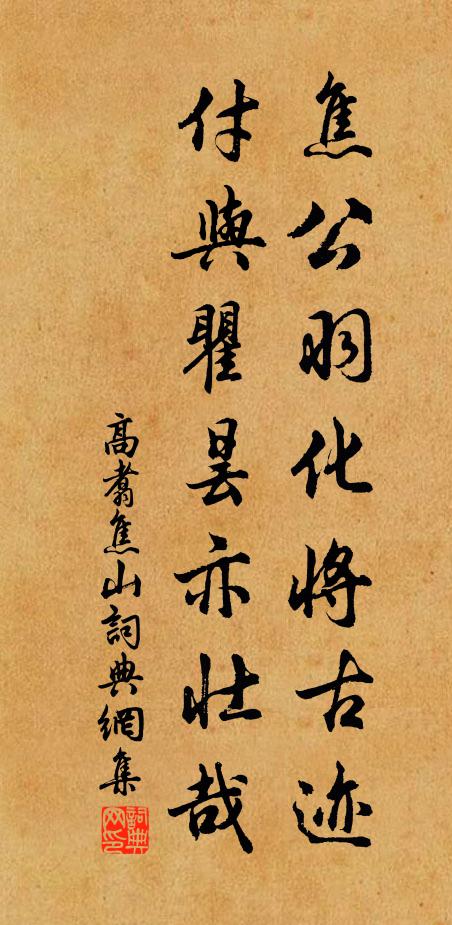 焦公羽化将古迹
付與瞿昙亦壮哉
高翥焦山詞典網集
詞典网印